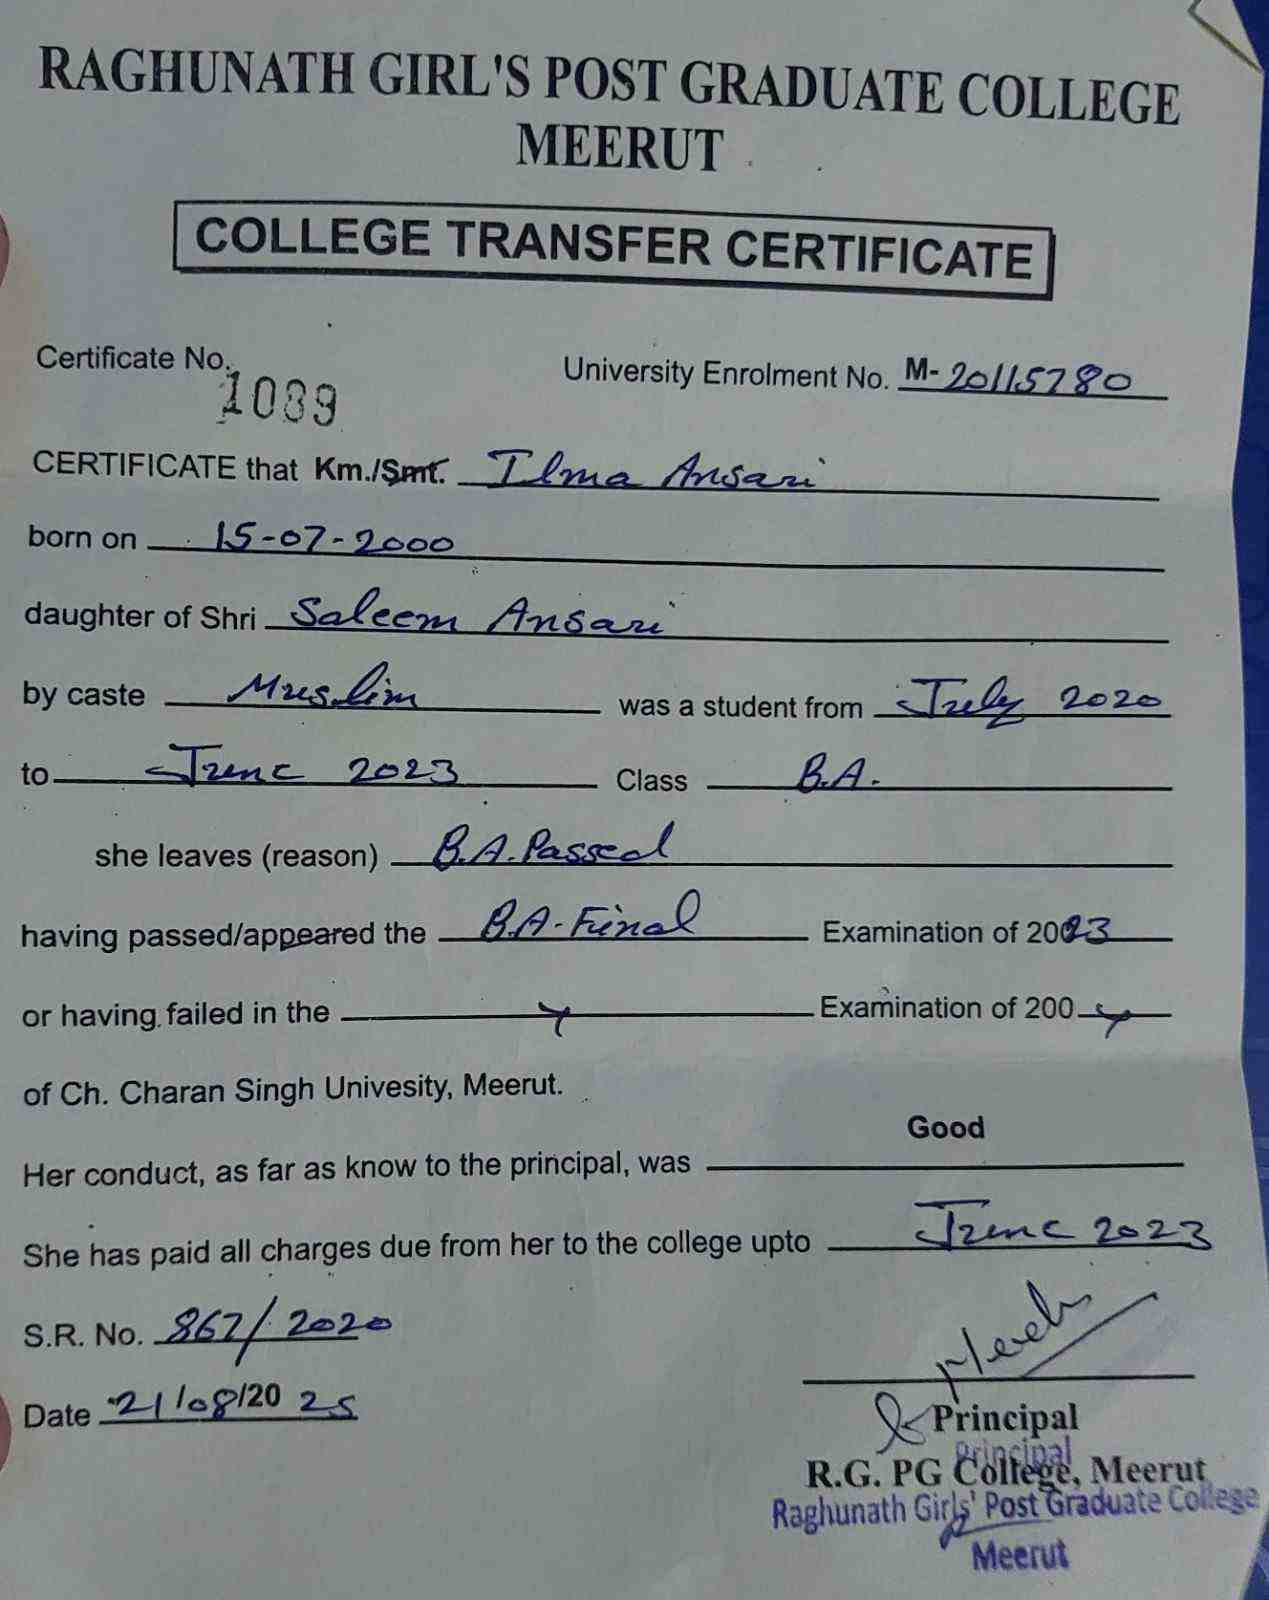 RAGHUNATH GIRL'S POST GRADUATE COLLEGE
MEERUT
COLLEGE TRANSFER CERTIFICATE
Certificate No. 1089
University Enrolment No. M-20115780
CERTIFICATE that Km./Smt. Ilma Ansari
born on 15-07-2000
daughter of Shri Saleem Ansari
by caste Muslim was a student from July 2020
to June 2023 Class B.A.
she leaves (reason) B.A. Passed
having passed/appeared the B.A-Final Examination of 2023
or having failed in the Examination of 200
of Ch. Charan Singh Univesity, Meerut.
Her conduct, as far as know to the principal, was Good
She has paid all charges due from her to the college upto June 2023
S.R. No. 867/2020
Date 21/08/2025
Principal
Principal
R.G. PG College, Meerut
Raghunath Girls' Post Graduate College
Meerut